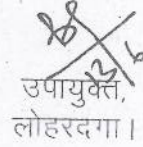 उपायुक्त,
लोहरदगा।